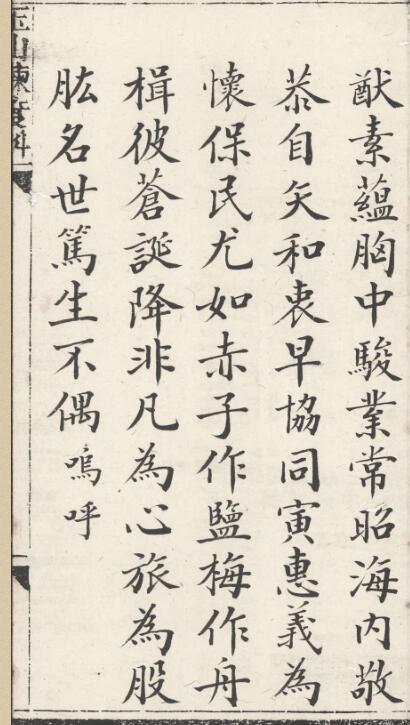 猷素蘊胸中駿業常昭海内敬
恭自矢和衷早協同寅惠義為
懷保民尤如赤子作鹽梅作舟
楫彼蒼誕降非凡為心旅為股
肱名世篤生不偶嗚呼